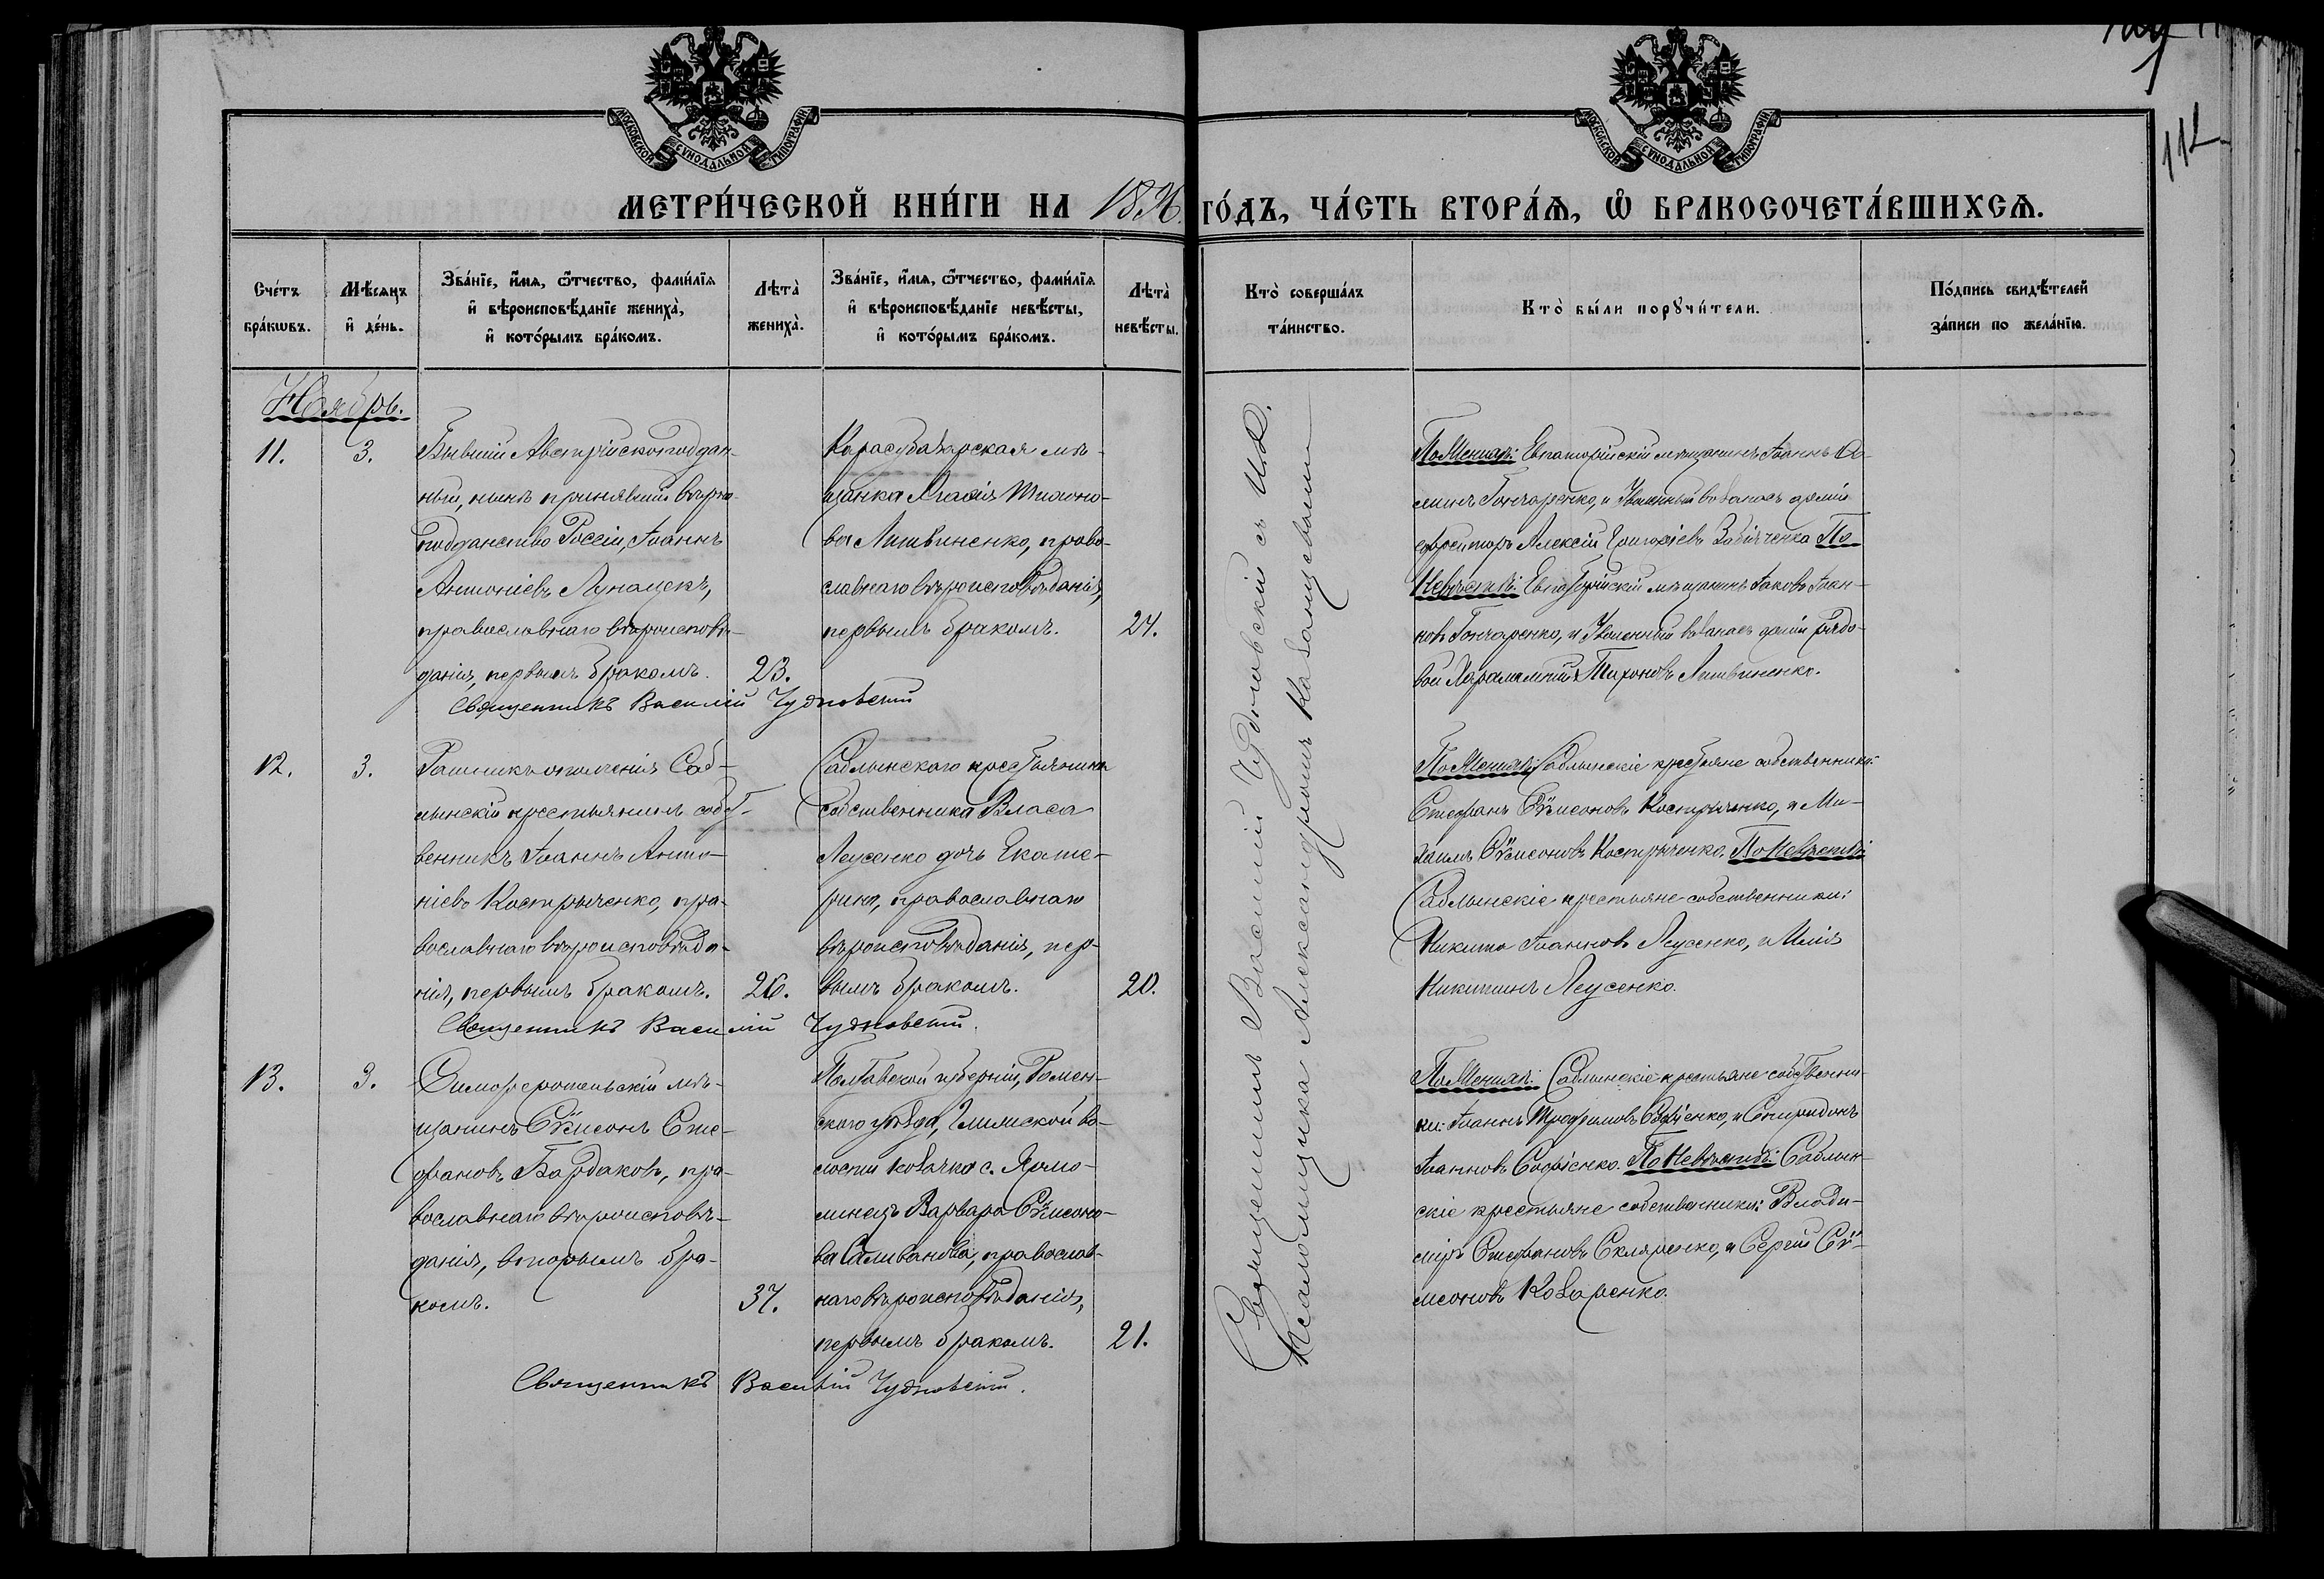 МОСКОВСКОЙ СѴНОДАЛЬНОЙ ТИПОГРАФІИ
МОСКОВСКОЙ СѴНОДАЛЬНОЙ ТИПОГРАФІИ
112
МЕТРИ́ЧЕСКОЙ КНИ́ГИ НА 1896 ГО́ДЪ, ЧА́СТЬ ВТОРА́Ѧ, Ѡ҆ БРАКОСОЧЕТА́ВШИХСѦ.
Сче́тъ бра́кѡвъ.
Мѣ́сѧцъ и҆ де́нь.
Зва́нїе, и҆́мѧ, ѻ҆́тчество, фамилїѧ и҆ вѣроисповѣ́данїе жениха̀, и҆ кото́рымъ бра́комъ.
Лѣта̀ жениха̀.
Зва́нїе, и҆́мѧ, ѻ҆́тчество, фамилїѧ и҆ вѣроисповѣ́данїе невѣ́сты, и҆ кото́рымъ бра́комъ.
Лѣта̀ невѣ́сты.
Кто̀ соверша́лъ та́инство.
Кто̀ бы́ли порꙋчи́тели.
По́дпись свидѣ́телей за́писи по жела́нїю.
Ноябрь.
11.
3.
Бывшій Австрійскоподдан-
ный, нынѣ принявшій вѣрно-
подданство Россіи, Іоаннъ
Антоніевъ Лунацекъ,
православнаго вѣроисповѣ-
данія, первымъ бракомъ.
23.
Карасубазарская мѣ-
щанка Марія Тихоно-
ва Литвиненко, право-
славнаго вѣроисповѣданія,
первымъ бракомъ.
24.
Священникъ Василій Чудновскій
По Женихѣ: Евпаторійскій мѣщанинъ Іоаннъ Ѳо-
минъ Гончаренко, и Уволенный въ запасъ арміи
ефрейторъ Алексій Григоріевъ Забіяченко По
Невѣстѣ: Евпаторійскій мѣщанинъ Іаковъ Іоан-
новъ Гончаренко, и Уволенный въ запасъ арміи рядо-
вой Харалампій Тихоновъ Литвиненко.
12.
3.
Ратникъ ополченія Саб-
лынскій крестьянинъ собст-
венникъ Іоаннъ Анто-
ніевъ Костырченко, пра-
вославнаго вѣроисповѣда-
нія, первымъ бракомъ.
26.
Саблынскаго крестьянина
собственника Власа
Леусенко дочь Екате-
рина, православнаго
вѣроисповѣданія, пер-
вымъ бракомъ.
20.
Священникъ Василій Чудновскій.
По Женихѣ: Саблынскіе крестьяне собственники:
Стефанъ Сѵмеоновъ Костырченко, и Ми-
хаилъ Сѵмеоновъ Костырченко. По Невѣстѣ:
Саблынскіе крестьяне собственники:
Никита Іоанновъ Леусенко, и Илія
Никитинъ Леусенко.
13.
3.
Симферопольскій мѣ-
щанинъ Сѵмеонъ Сте-
фановъ Бардаковъ, пра-
вославнаго вѣроисповѣ-
данія, вторымъ бра-
комъ.
37.
Полтавской губерніи, Ромен-
скаго уѣзда, волости козачка с. Ярмо-
линецъ Варвара Сѵмеоно-
ва Саливанова, православ-
наго вѣроисповѣданія,
первымъ бракомъ.
21.
Священникъ Василій Чудновскій.
По Женихѣ: Саблынскіе крестьяне собственни-
ки: Іоаннъ Трофимовъ Софіенко, и Спиридонъ
Іоанновъ Софіенко. По Невѣстѣ: Саблын-
скіе крестьяне собственники: Влади-
міръ Стефановъ Скляренко, и Сергій Сѵ-
меоновъ Козаренко.
Священникъ Василій Чудновскій съ И.Д.
Псаломщика Александромъ Казанцевымъ